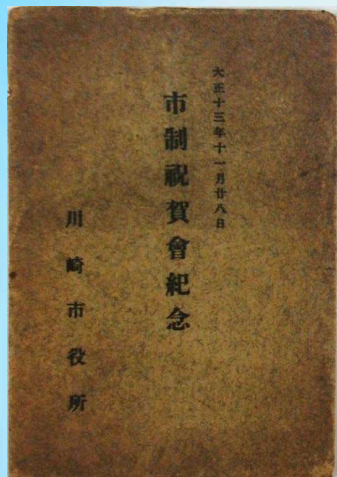 大正十三年十一月廿八日
市制祝賀會紀念
川崎市役所